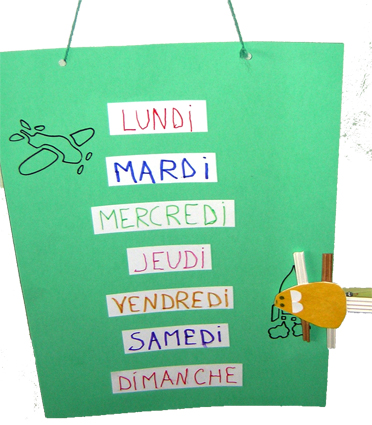 LUNDi
MARDi
MERCREDi
JEUDi
VENDREDi
SAMEDi
DiMANCHE